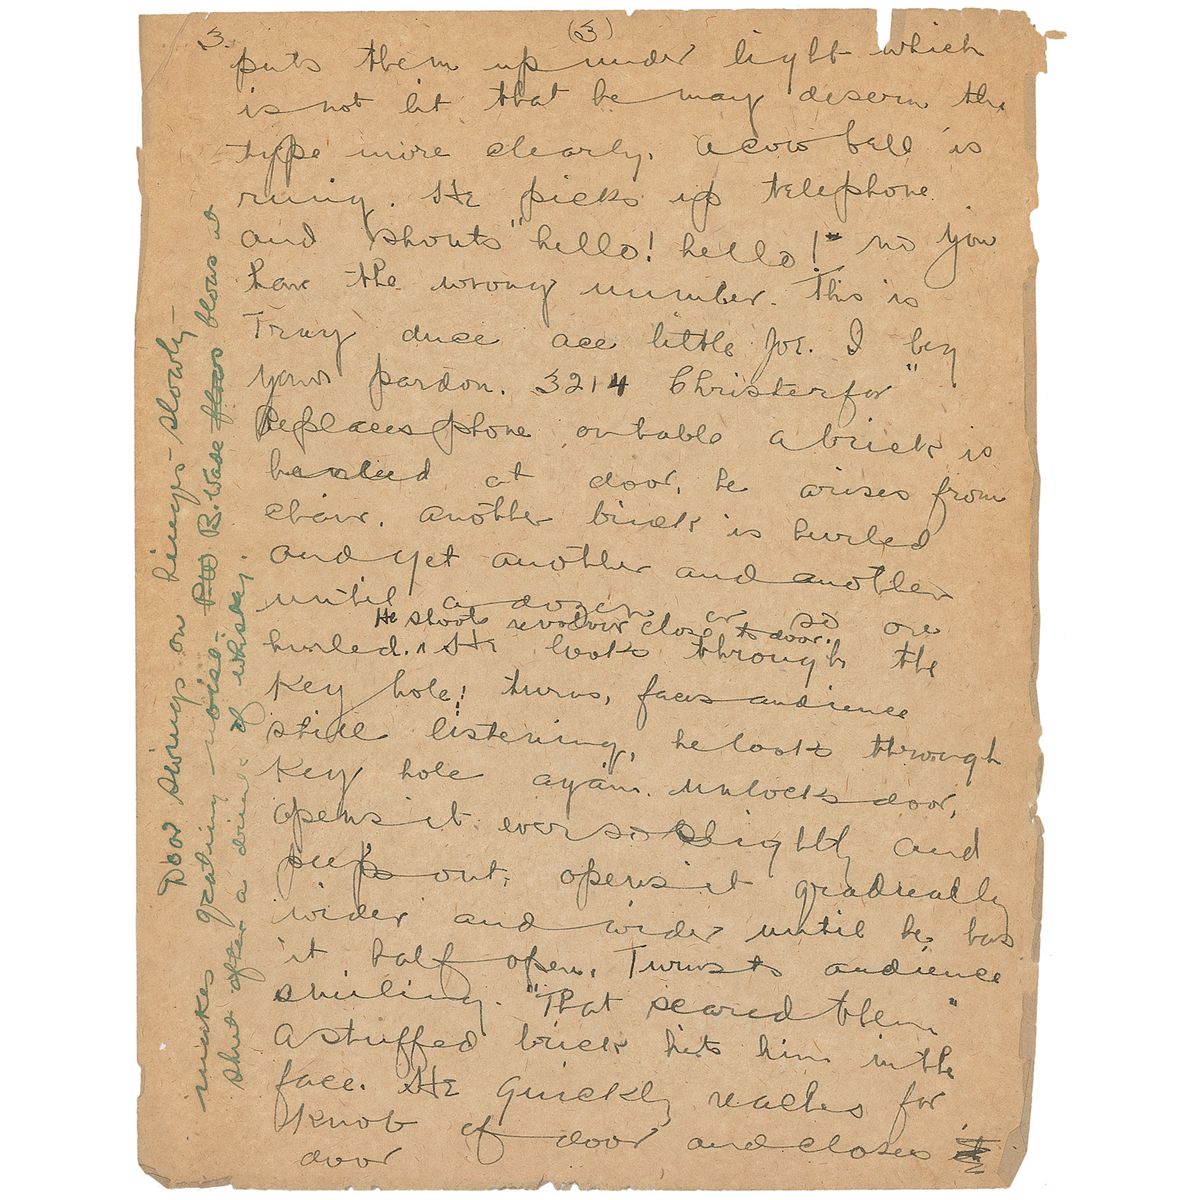 3. (3)
puts them up under light which
is not lit that he may discern the
type more clearly. A cow bell is
rung. He picks up telephone
and shouts "hello! hello!" no you
have the wrong number. This is
Tray duce ace little Joe. I beg
your pardon. 3214 Christerfor"
Replaces phone on table a brick is
heaved at door, he arises from
chair. another brick is hurled
and yet another and another
until a dozen or so are
He shoots revolver close to door.
hurled. He looks through the
Key hole, turns, faces audience
still listening, he looks through
Key hole again. unlocks door,
opens it ever so slightly and
peeps out, opens it gradually
wider and wider until he has
it half open. Turns to audience
smiling. "That scared them"
A stuffed brick hits him in the
face. He quickly reaches for
Knob of door and closes it
door
Door swings on hinges - slowly -
makes grating noise - PW B. Wade blows blows at
shut after a drink of whiskey.